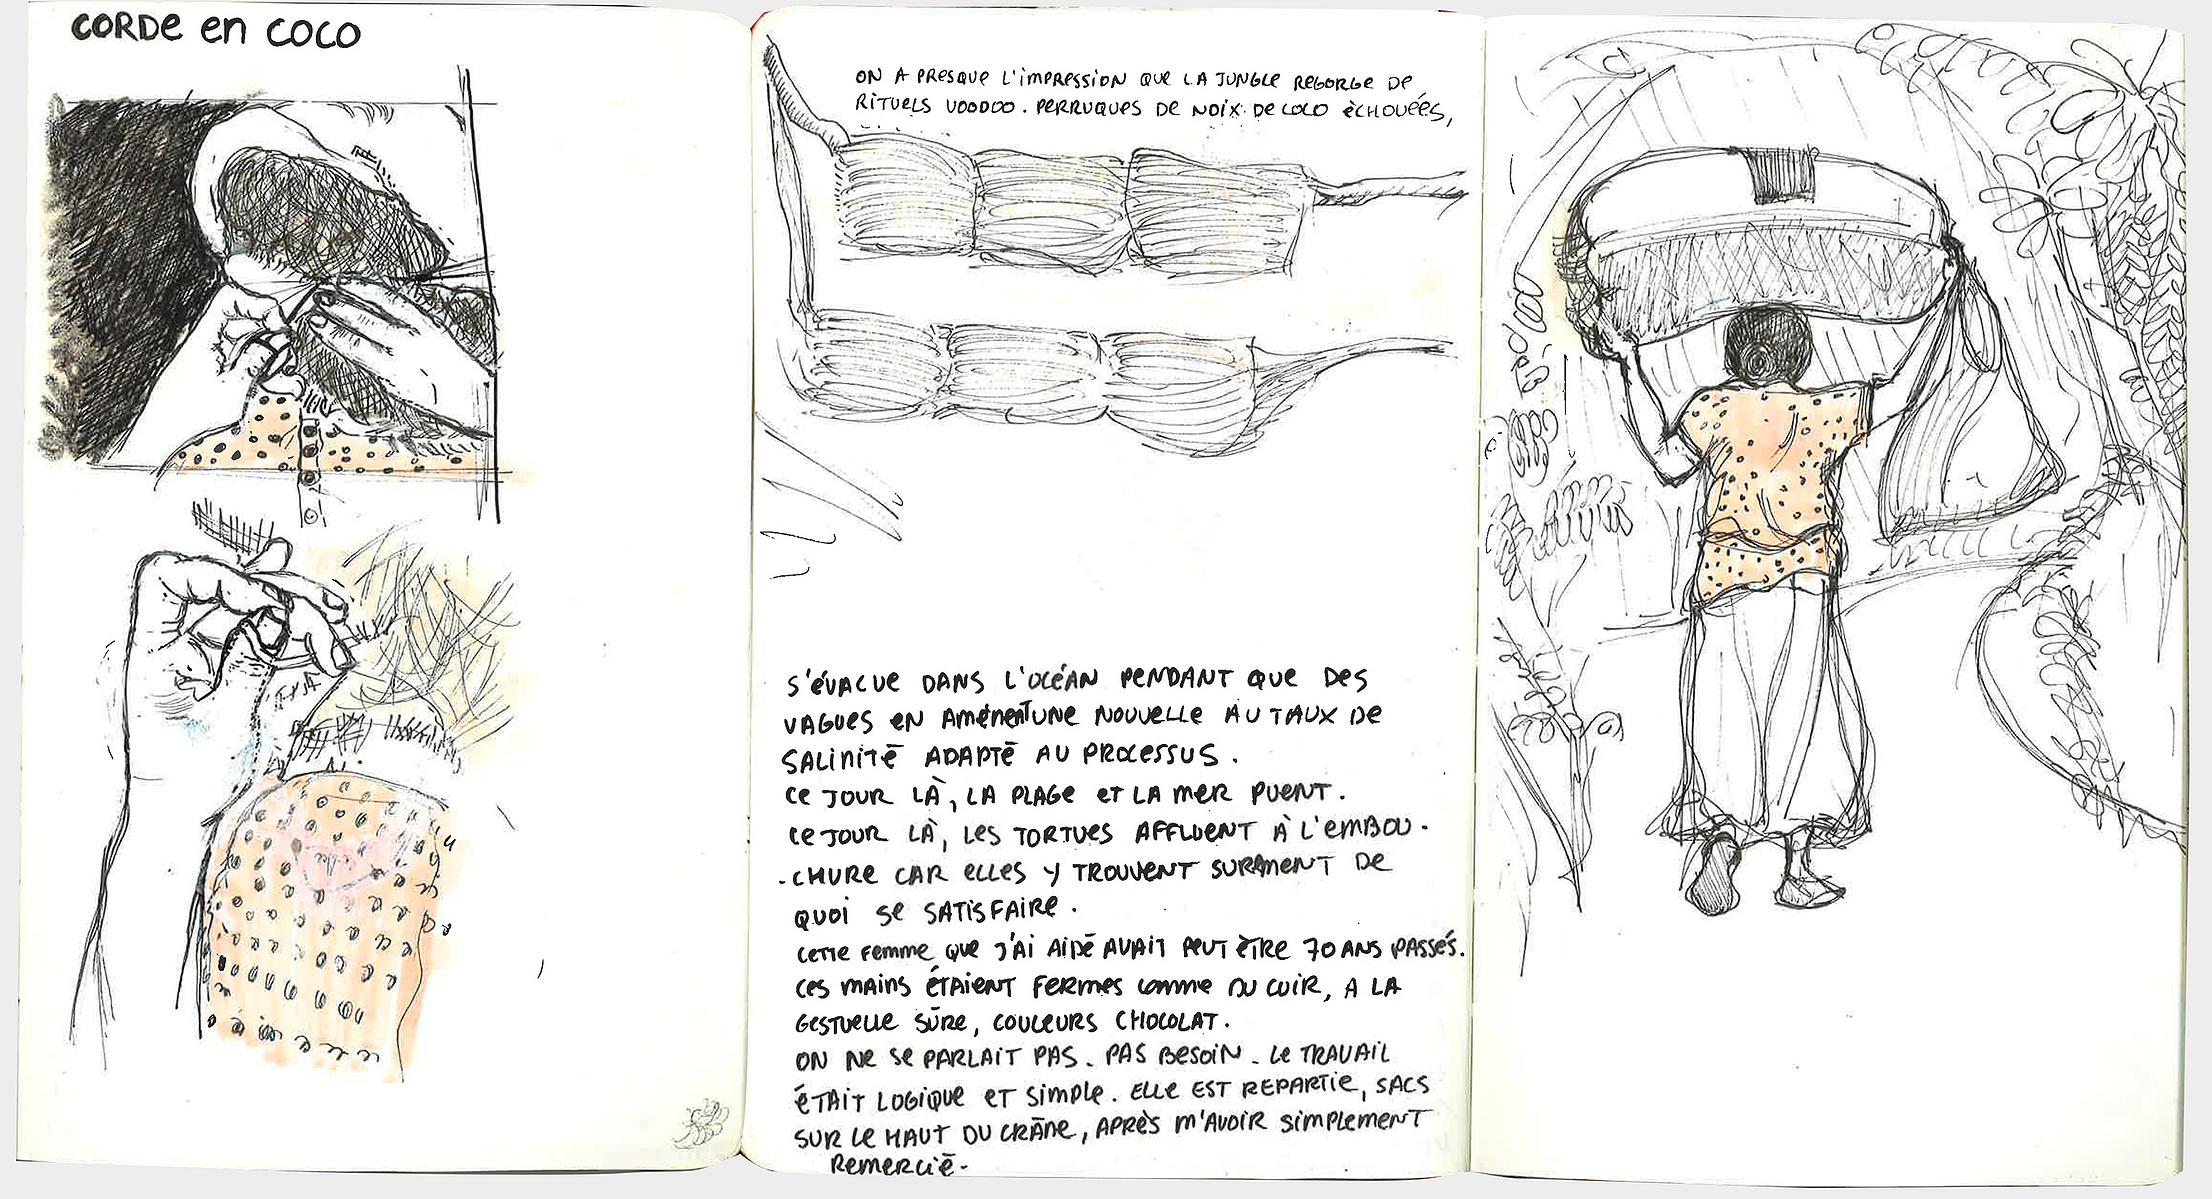 CORDE en COCO
ON A PRESQUE L'IMPRESSION QUE LA JUNGLE REGORGE DE
RITUELS VOODOO. PERRUQUES DE NOIX DE COCO ÉCHOUÉES,
S'ÉVACUE DANS L'OCÉAN PENDANT QUE DES
VAGUES EN AMÉNENT UNE NOUVELLE AU TAUX DE
SALINITÉ ADAPTÉ AU PROCESSUS.
CE JOUR LÀ, LA PLAGE ET LA MER PUENT.
CE JOUR LÀ, LES TORTUES AFFLUENT À L'EMBOU-
-CHURE CAR ELLES Y TROUVENT SURAMENT DE
QUOI SE SATISFAIRE.
CETTE FEMME QUE J'AI AIDÉ AVAIT PEUT ÊTRE 70 ANS PASSÉS.
CES MAINS ÉTAIENT FERMES COMME DU CUIR, A LA
GESTUELLE SÛRE, COULEURS CHOCOLAT.
ON NE SE PARLAIT PAS. PAS BESOIN. LE TRAVAIL
ÉTAIT LOGIQUE ET SIMPLE. ELLE EST REPARTIE, SACS
SUR LE HAUT DU CRÂNE, APRÈS M'AVOIR SIMPLEMENT
REMERCIÉ-